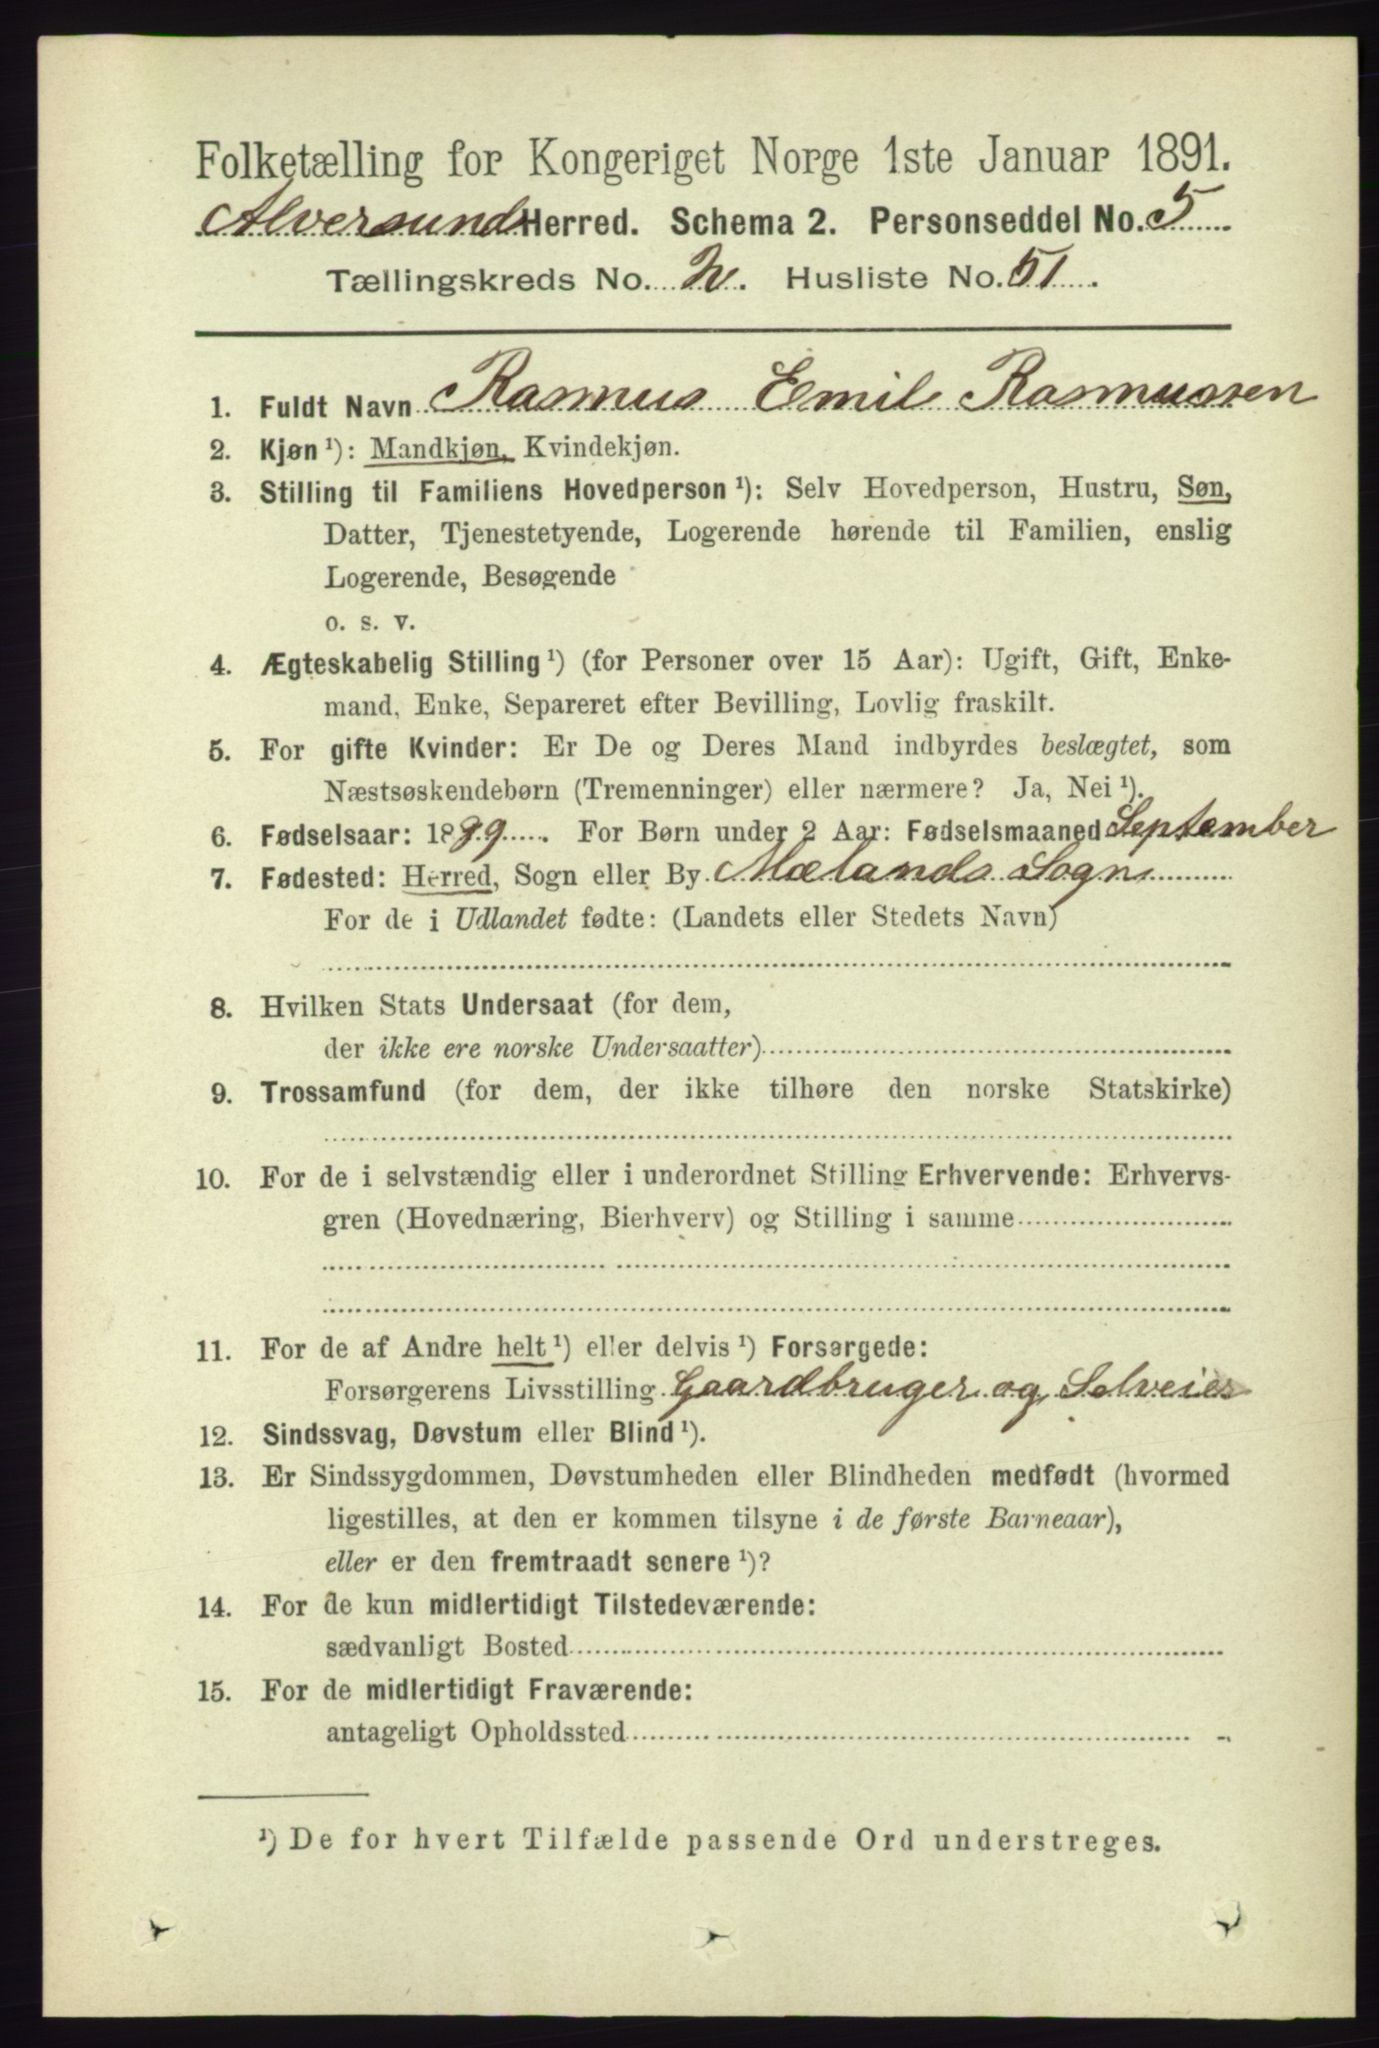 Folketælling for Kongeriget Norge 1ste Januar 1891.
Alversund Herred. Schema 2. Personseddel No. 5
Tællingskreds No. 2. Husliste No. 51.
1. Fuldt Navn Rasmus Emil Rasmussen
2. Kjøn ¹): Mandkjøn, Kvindekjøn.
3. Stilling til Familiens Hovedperson ¹): Selv Hovedperson, Hustru, Søn,
Datter, Tjenestetyende, Logerende hørende til Familien, enslig
Logerende, Besøgende
o. s. v.
4. Ægteskabelig Stilling ¹) (for Personer over 15 Aar): Ugift, Gift, Enke-
mand, Enke, Separeret efter Bevilling, Lovlig fraskilt.
5. For gifte Kvinder: Er De og Deres Mand indbyrdes beslægtet, som
Næstsøskendebørn (Tremenninger) eller nærmere? Ja, Nei ¹).
6. Fødselsaar: 1889. For Børn under 2 Aar: Fødselsmaaned September
7. Fødested: Herred, Sogn eller By Mælands Sogn
For de i Udlandet fødte: (Landets eller Stedets Navn)
8. Hvilken Stats Undersaat (for dem,
der ikke ere norske Undersaatter)
9. Trossamfund (for dem, der ikke tilhøre den norske Statskirke)
10. For de i selvstændig eller i underordnet Stilling Erhvervende: Erhvervs-
gren (Hovednæring, Bierhverv) og Stilling i samme
11. For de af Andre helt ¹) eller delvis ¹) Forsørgede:
Forsørgerens Livsstilling Gaardbruger og Selveier
12. Sindssvag, Døvstum eller Blind ¹).
13. Er Sindssygdommen, Døvstumheden eller Blindheden medfødt (hvormed
ligestilles, at den er kommen tilsyne i de første Barneaar),
eller er den fremtraadt senere ¹)?
14. For de kun midlertidigt Tilstedeværende:
sædvanligt Bosted
15. For de midlertidigt Fraværende:
antageligt Opholdssted
¹) De for hvert Tilfælde passende Ord understreges.